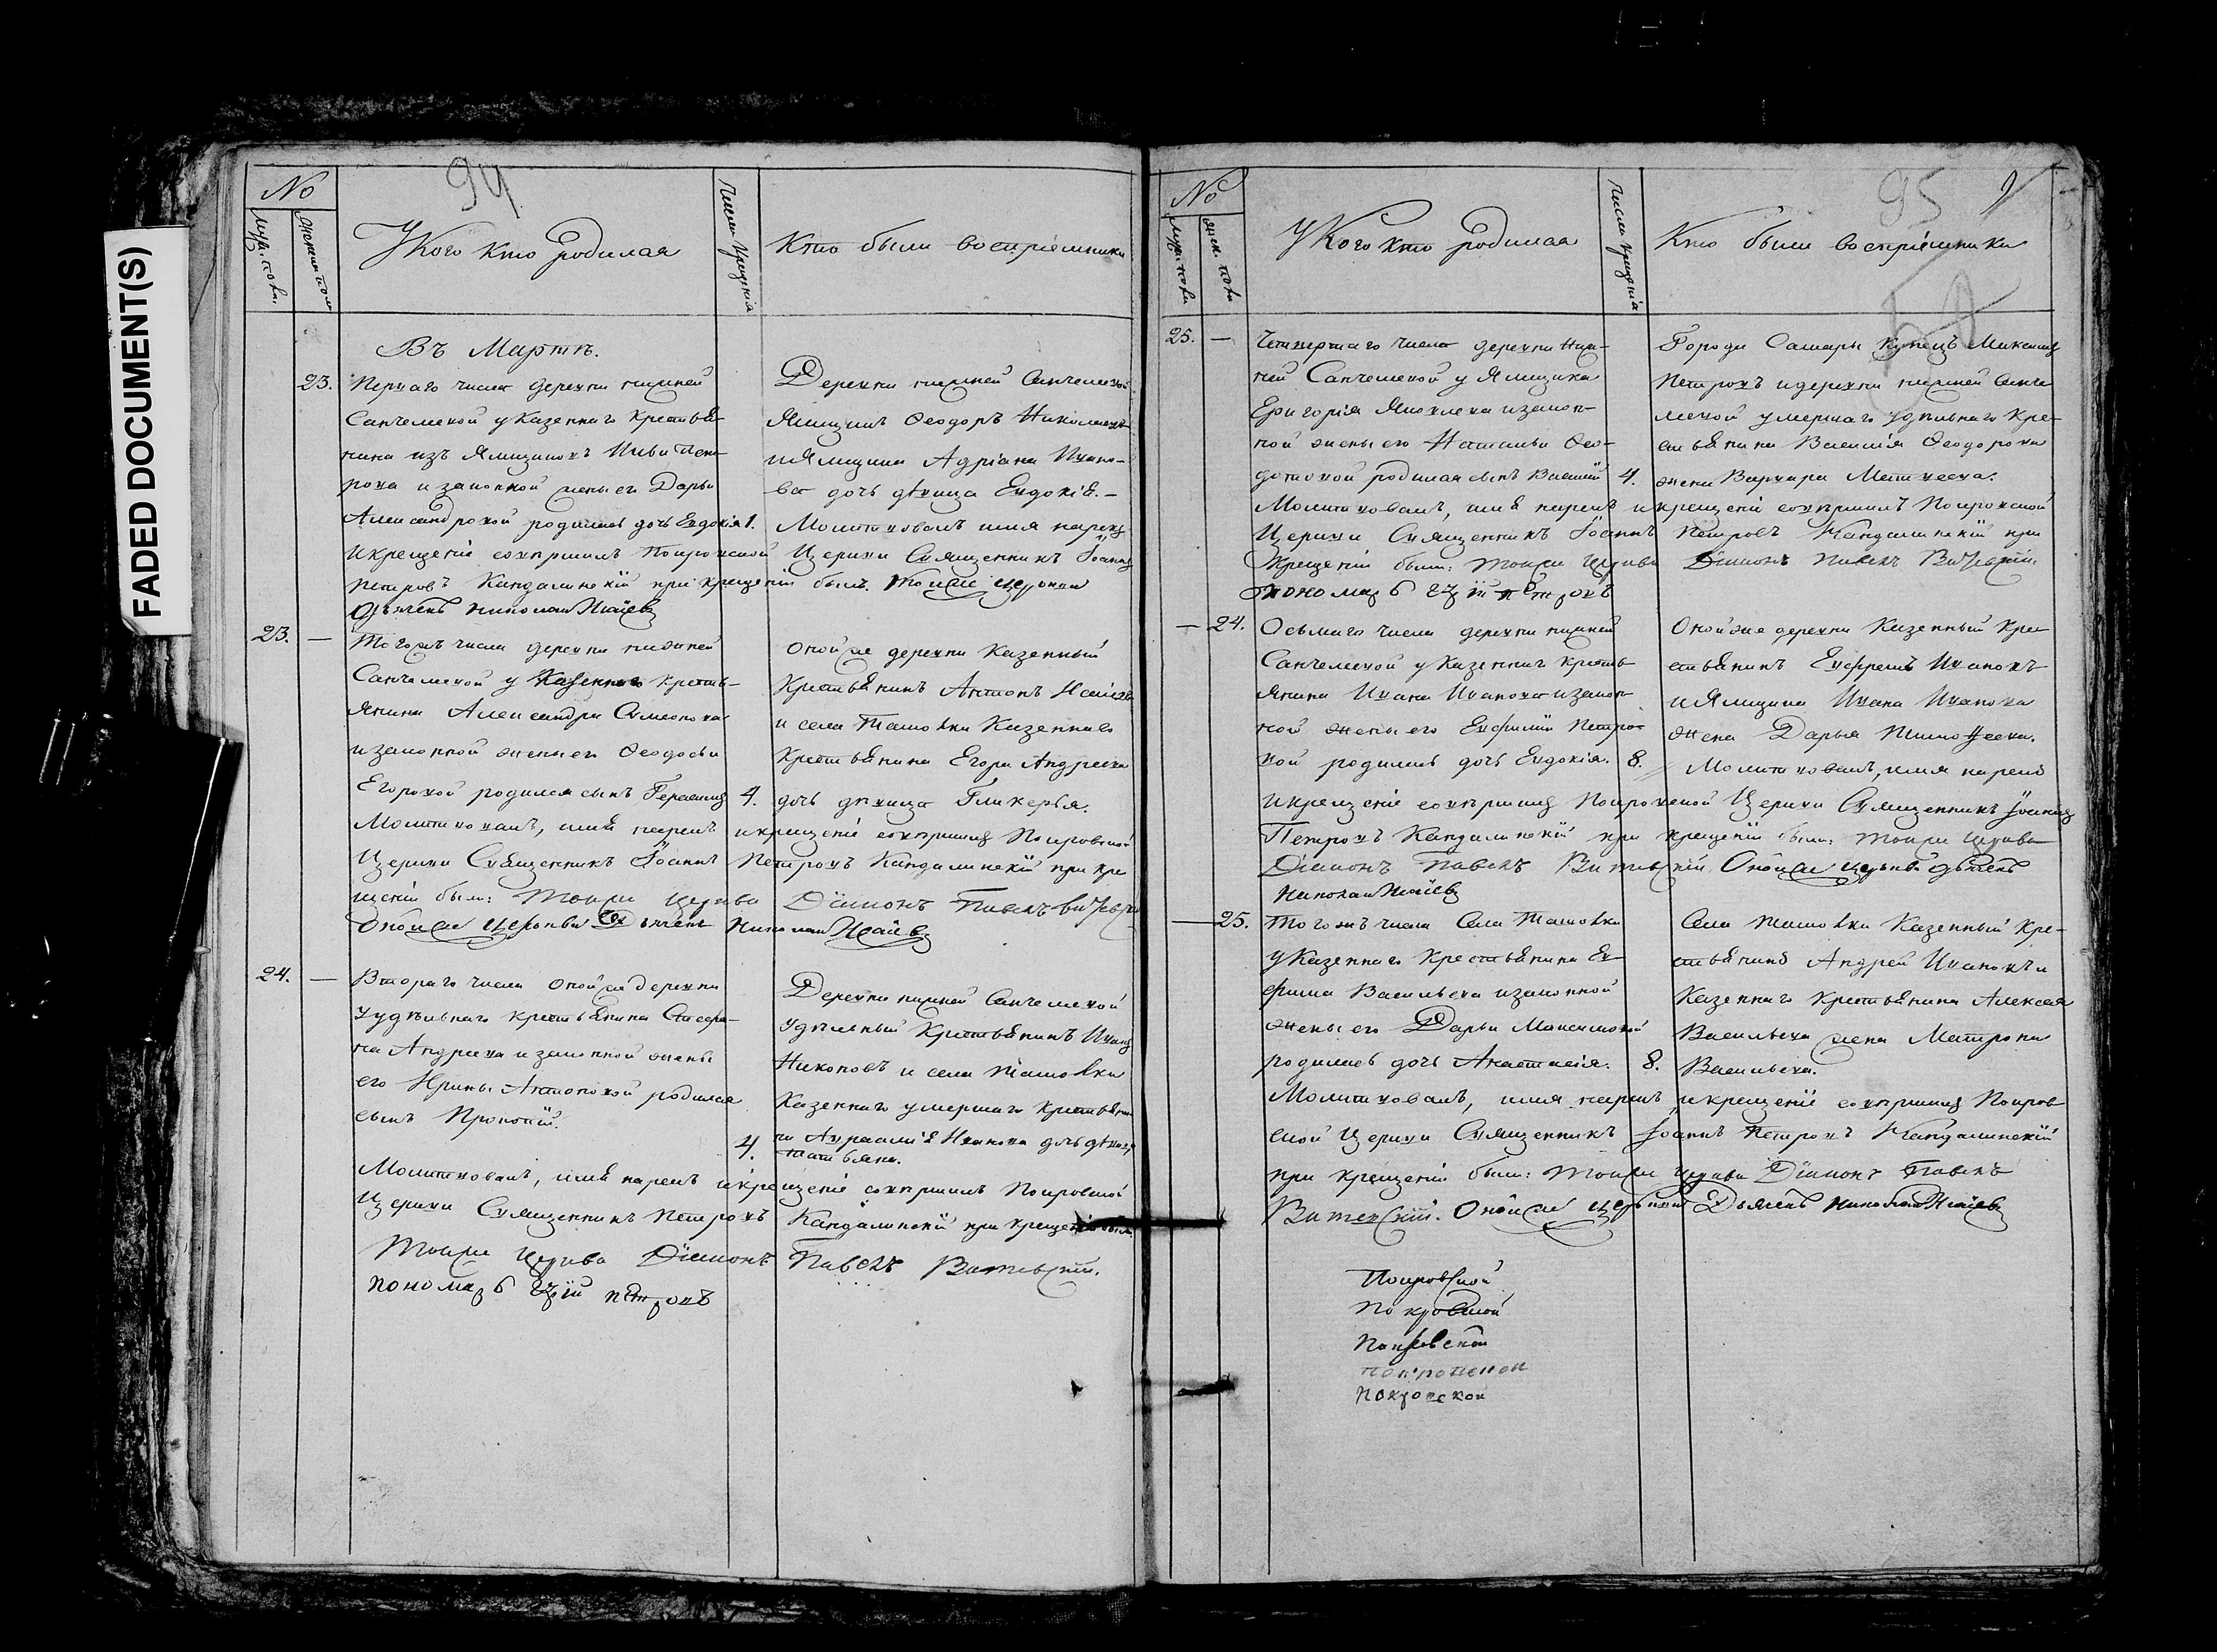 FADED DOCUMENT(S)
94
№
Муж. пола.
Женск. пола
У Кого кто Родился
Числа крещенія
Кто были воспріемники
Въ Мартѣ.
23.
Перваго числа деревни нижней
Санчелеевой у Казеннаго крестья-
нина изъ Ямщиковъ Пет-
рова и законной жены его Дарьи
Александровой родилась дочь Евдокія
1.
Деревни нижней Санчелеевой
Ямщикъ Ѳеодоръ
и Ямщика Адріана Ивано-
ва дочь дѣвица Евдокіѣ.-
Молитвовалъ имя нарекъ
и крещеніе совершилъ Покровской Церкви Священникъ Іоаннъ
Петровъ Кандалинскій при крещеніи былъ. Тойже церкви
дьячекъ Николай Исаіевъ
23. —
Тогожъ числа деревни нижней
Санчелеевой у Казеннаго кресть-
янина Александра Симеонова
и законной жены его Ѳеодосьи
Егоровой родился сынъ Герасимъ
4.
Онойже деревни Казенный
Крестьянинъ Антонъ
и села Ташовки Казеннаго
Крестьянина Егора Андреева
дочь дѣвица Гликерья.
Молитвовалъ, имя нарекъ и крещеніе совершилъ Покровской
Церкви Священникъ Іоаннъ Петровъ Кандалинскій при кре
щеніи были: Тойже Церкви Діаконъ Павелъ Витевскій
Онойже церкви дьячекъ Николай Исаіевъ
24. —
Втораго числа Онойже деревни
у удѣльнаго крестьянина Стефа-
на Андреева и законной жены
его Ирины Антоновой родился
сынъ Прокопій.
4.
Деревни нижней Санчелеевой
Удѣльный Крестьянинъ Иванъ
Никоновъ и села Ташовки
Казеннаго умершаго крестьяни
на Аврааміѣ Иванова дочь дѣвица
татьяна.
Молитвовалъ, имя нарекъ и крещеніе совершилъ Покровской
Церкви Священникъ Петровъ Кандалинскій при крещеніи были
Тойже Церкви Діаконъ Павелъ Витевскій.
пономарь Петровъ
95
№
Муж. пола
Женск. пола
У Кого кто родился
Числа крещенія
Кто были воспріемники
25. —
Четвертаго числа деревни Ниж-
ней Санчелеевой у Ямщика
Григорія Яковлева и закон-
ной жены его Натальи Ѳео-
дотовой родился сынъ Василій
4.
Города Самары Купецъ
Петровъ и деревни нижней Санче
леевой умершаго удѣльнаго Кре-
стьянина Василія Ѳеодорова
жена Варвара Матвеева.
Молитвовалъ, имя нарекъ и крещеніе совершилъ Покровской
Церкви Священникъ Іоаннъ Петровъ Кандалинскій при
Крещеніи были: Тойже Церкви Діаконъ Павелъ Витевскій.
пономарь Петровъ
— 24.
Осьмаго числа деревни нижней
Санчелеевой у Казеннаго кресть-
янина Ивана Иванова и закон-
ной жены его Евфиміи Петро-
вой родилась дочь Евдокія.
8.
Онойже деревни Казенный Кре-
стьянинъ Ефремъ Ивановъ
и Ямщика Ивана Иванова
Жена Дарья Тимоѳеева.
Молитвовалъ, имя нарекъ
и крещеніе совершилъ Покровской Церкви Священникъ Іоаннъ
Петровъ Кандалинскій при крещеніи были: Тойже Церкви
Діаконъ Павелъ Витевскій Онойже церкви дьячекъ
Николай Исаіевъ
— 25.
Тогожъ числа Села Ташовки
у Казеннаго Крестьянина Ев-
фима Васильева и законной
жены его Дарьи Максимовой
родилась дочь Анастасія.
8.
Села Ташовки Казенный Кре-
стьянинъ Андрей Ивановъ и
Казеннаго крестьянина Алексея
Васильева жена Матрона
Васильева.
Молитвовалъ, имя нарекъ и крещеніе совершилъ Покров
ской Церкви Священникъ Іоаннъ Петровъ Кандалинскій
при крещеніи были: Тойже Церкви Діаконъ Павелъ
Витевскій. Онойже церкви Дьячекъ Николай Исаіевъ
Покровской
Покровской
Покровской
Покровской
Покровской